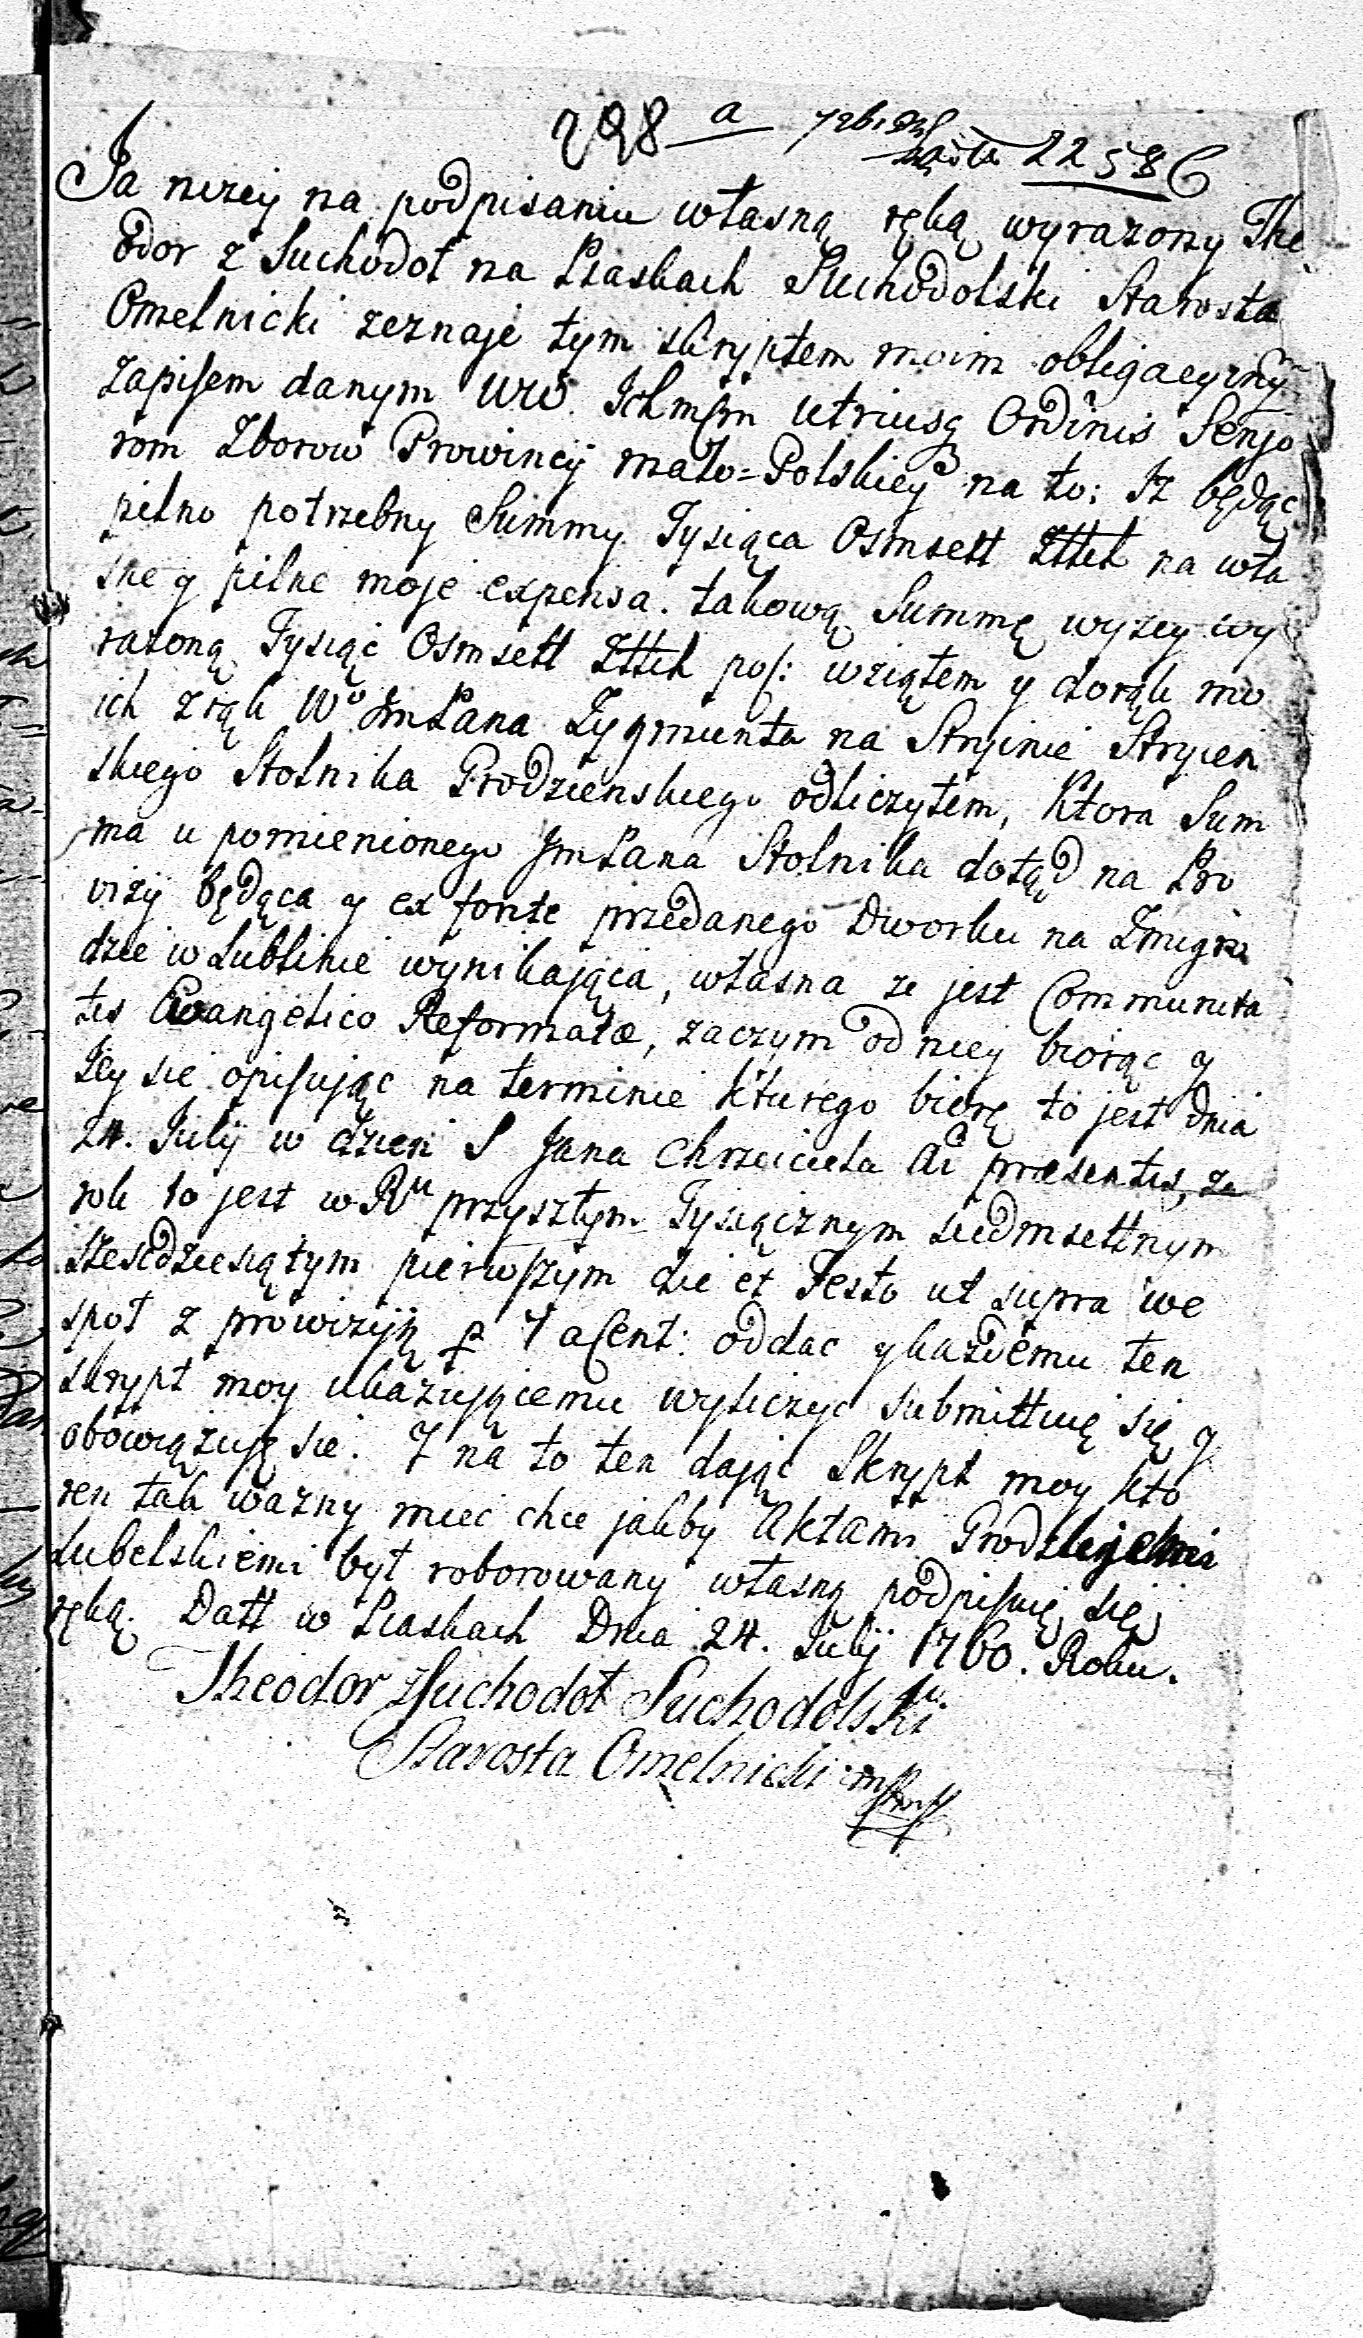 298 a
2258
Ja nizey na podpisaniu własną ręką wyrazony The
odor z Suchodoł na Piaskach Suchodolski Starosta
Omelnicki zeznaję tym skryptem moim obligacyiny
zapisem danym WW. Ichmsm utriusq Ordinis Senjo
rom Zborow Prowincÿ mało=Polskiey na to: Iz będąc
pilno potrzebny Summy Tysiąca Osmsett Zttch na wła
sne y pilne moje expensa. takową Summę wyzey wy
razoną Tysiąc Osmsett Zttch pol: wziąłem y dorąk mo
ich zrąk Wo JmPana Zygmunta na Stryinie Stryien
skiego Stolnika Grodzienskiego odliczyłem, Ktora Sum
ma u pomienionego JmPana Stolnika dotąd na Pro
vizÿ będąca y ex fonte przedanego Dworku na Zmigro
dzie w Lublinie wynikająca, własna ze jest Communita
tis Evangelico Reformatæ, zaczym od niey biorąc y
Jey sie opisując na terminie kturego biorę to jest dnia
24. Julÿ w dzien S Jana Chrzciciela Ai præsentis, za
rok to jest w Ru przyszłym Tysiącznym siedmsettnym
szescdziesiątym pierwszym die et Festo ut supra we
społ z prowizyją p 7 aCent: oddac y kazdemu ten
skrypt moy ukazującemu wyliczyc submittuię się y
obowiązuję sie. I na to ten dając Skrypt moy kto
ren tak wazny miec chce jakby Aktami Grodzkiemi
Lubelskiemi był roborowany własną podpisuię się
ręką. Datt w Piaskach Dnia 24. Julÿ 1760. Roku.
Theodor z Suchodoł Suchodolski
Starosta Omelnicki